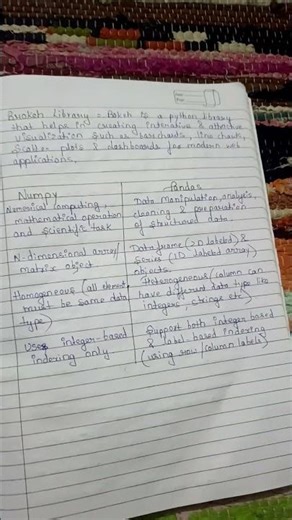 Buokeh Library = Bokeh is a python library
that helps in creating interative & attractive
visualization such as barcharts, line charts,
scatter plots & dashboards for modern web
applications.
Numpy
Numerical computing,
mathematical operation
and scientific task
N-dimensional array/
matrix object
Homogeneous (all element
must be same data
type)
Uses integer-based
indexing only
Pandas
Data manipulation, analysis,
cleaning & preparation
of structured data.
Dataframe (2D labeled) &
Series (1D labeled array)
objects.
Heterogeneous (column can
have different data type like
integers, strings etc)
Support both integer based
& label-based indexing
(using row/column labels)